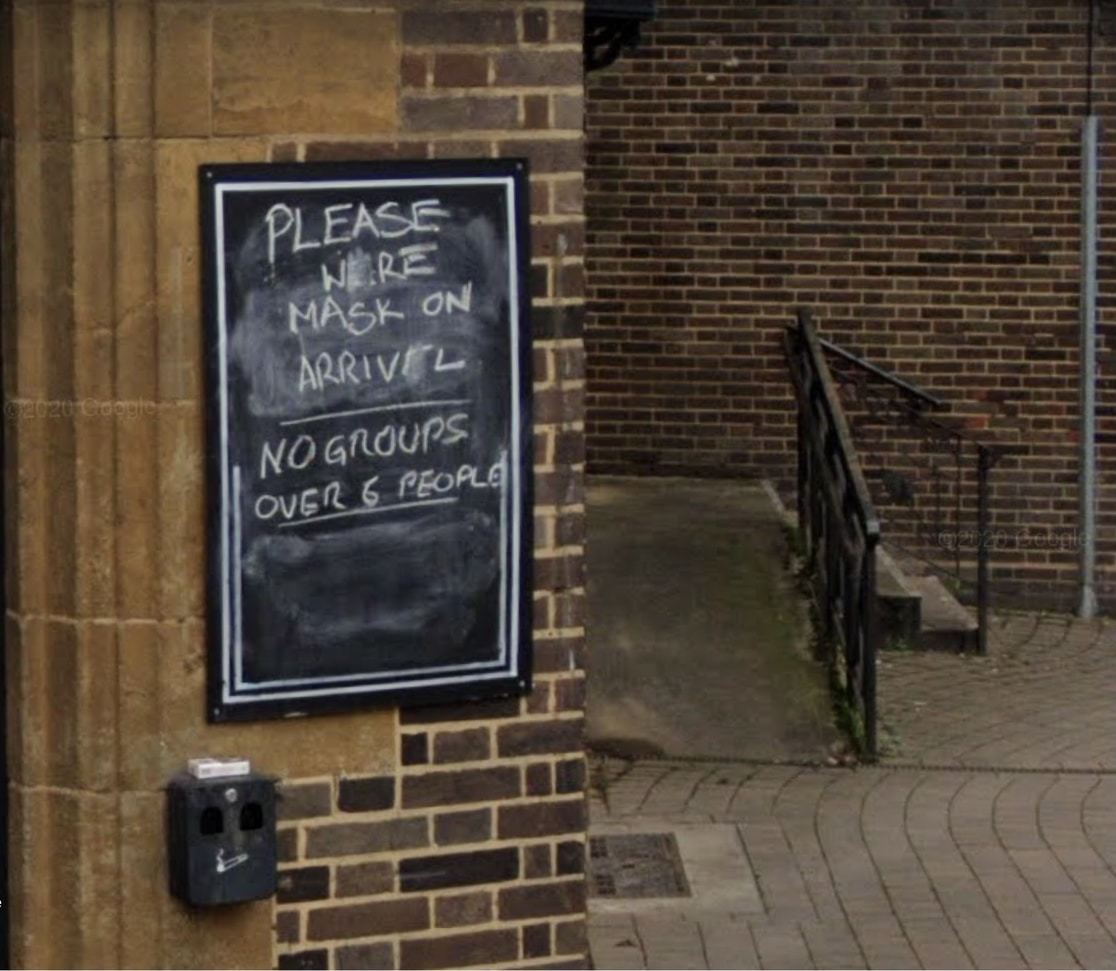 PLEASE
WERE
MASK ON
ARRIVEL
NO GROUPS
OVER 6 PEOPLE
©2020 Google
©2020 Google